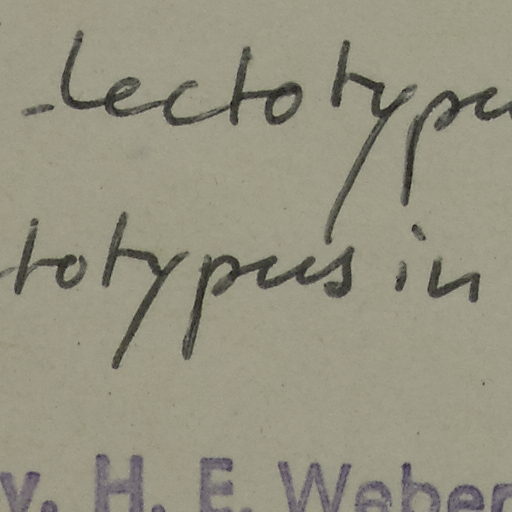 -lectotypu
totypus in
v. H. E. Weber